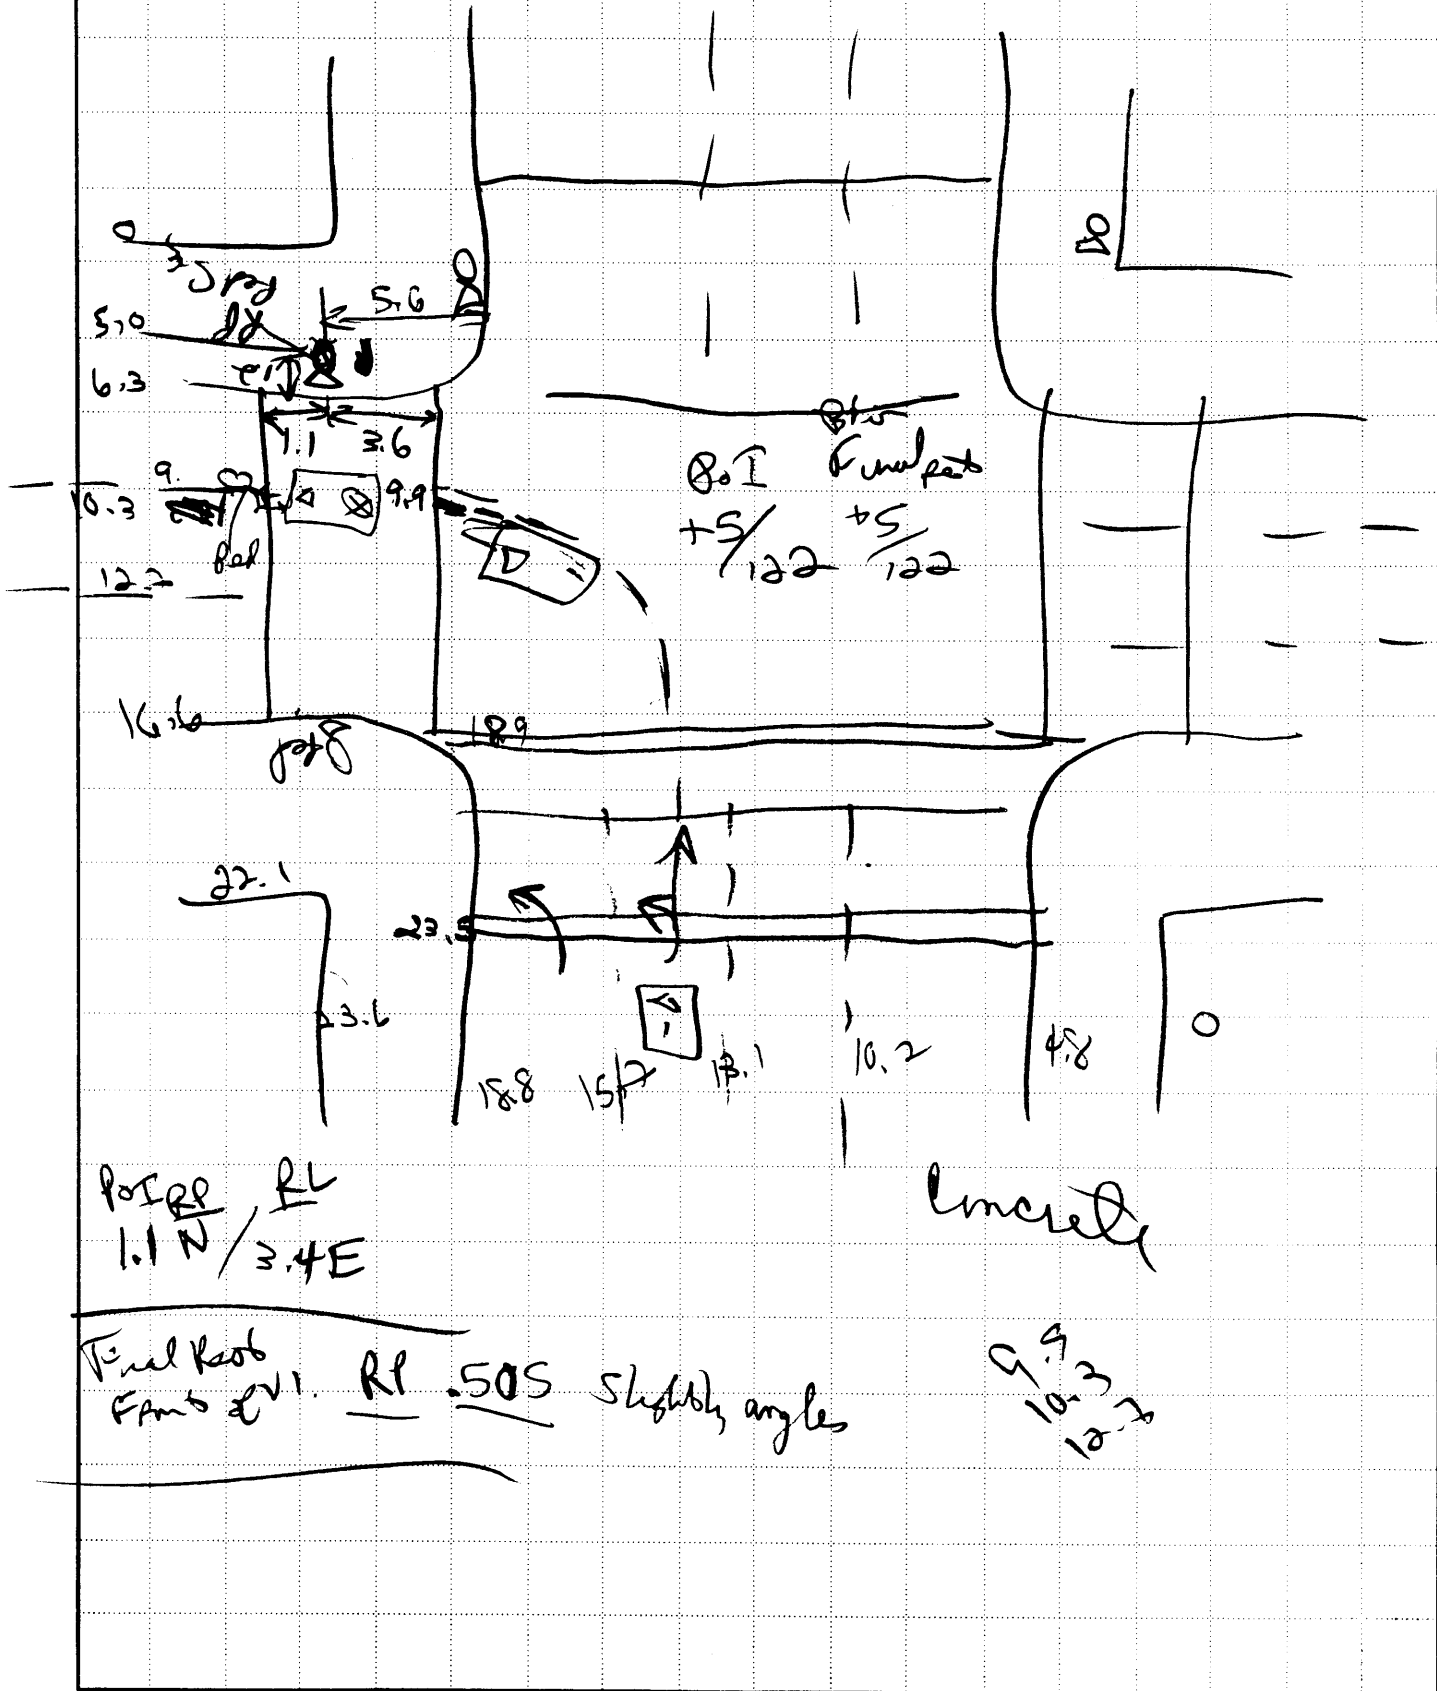 0
5.6
5.0
6.3
1.1 3.6
9.
10.3
9.9
Ped
12.2
P.O.I
+5/122
Final rest
+5/122
16.6
18.9
22.1
23.5
3.6
18.8
15.7
13.1
10.2
4.8
0
PoI RP / RL
1.1 N / 3.4 E
Concrete
Final Rest
Front of V1. RP .50 S Slightly angles
9.9
10.3
12.2